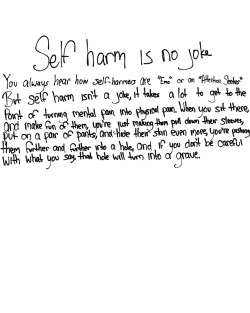 Self harm is no joke
You always hear how self-harmers are "Emo" or an "Attention Seeker"
But self harm isn't a joke, it takes a lot to get to the
Point of turning mental pain into physical pain. When you sit there,
and make fun of them, you're just making them pull down their sleeves,
put on a pair of pants, and hide their skin even more, you're pushing
them further and further into a hole, and if you don't be careful
With what you say, that hole will turn into a grave.